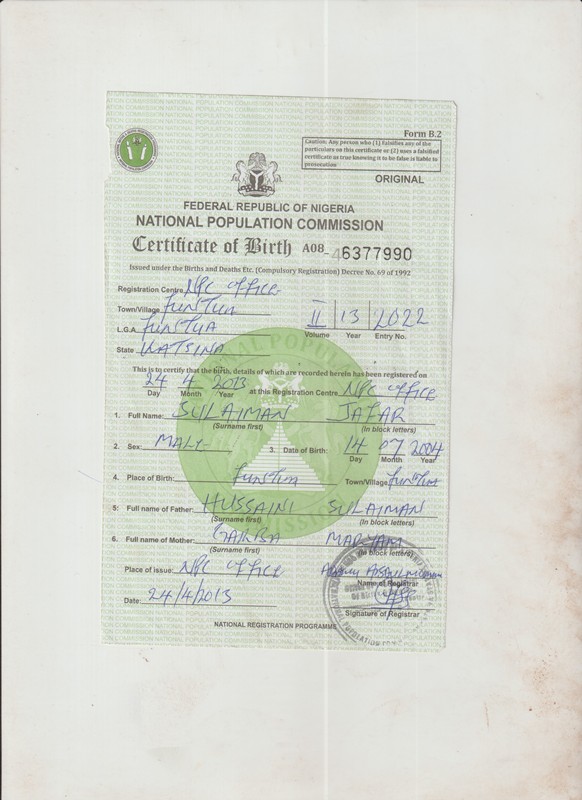 Form B.2
Caution: Any person who (1) Falsifies any of the
particulars on this certificate or (2) uses a falsified
certificate as true knowing it to be false is liable to
prosecution
ORIGINAL
FEDERAL REPUBLIC OF NIGERIA
NATIONAL POPULATION COMMISSION
Certificate of Birth A08- 46377990
Issued under the Births and Deaths Etc. (Compulsory Registration) Decree No. 69 of 1992
Registration Centre NPC OFFICE
Town/Village FUNTUA
II 13 2022
L.G.A. FUNTUA
Volume Year Entry No.
State KATSINA
This is to certify that the birth, details of which are recorded herein has been registered on
24 4 2013 at this Registration Centre NPC OFFICE
Day Month Year
1. Full Name: SULAIMAN JAFAR
(Surname first) (In block letters)
2. Sex: MALE 3. Date of Birth: 14 07 2004
Day Month Year
4. Place of Birth: FUNTUA Town/Village FUNTUA
5: Full name of Father: HUSSAINI SULAIMAN
(Surname first) (In block letters)
6. Full name of Mother: MARYAM
(Surname first) (In block letters)
Place of issue: NPC OFFICE
Name of Registrar
Date: 24/4/2013
Signature of Registrar
NATIONAL REGISTRATION PROGRAMME